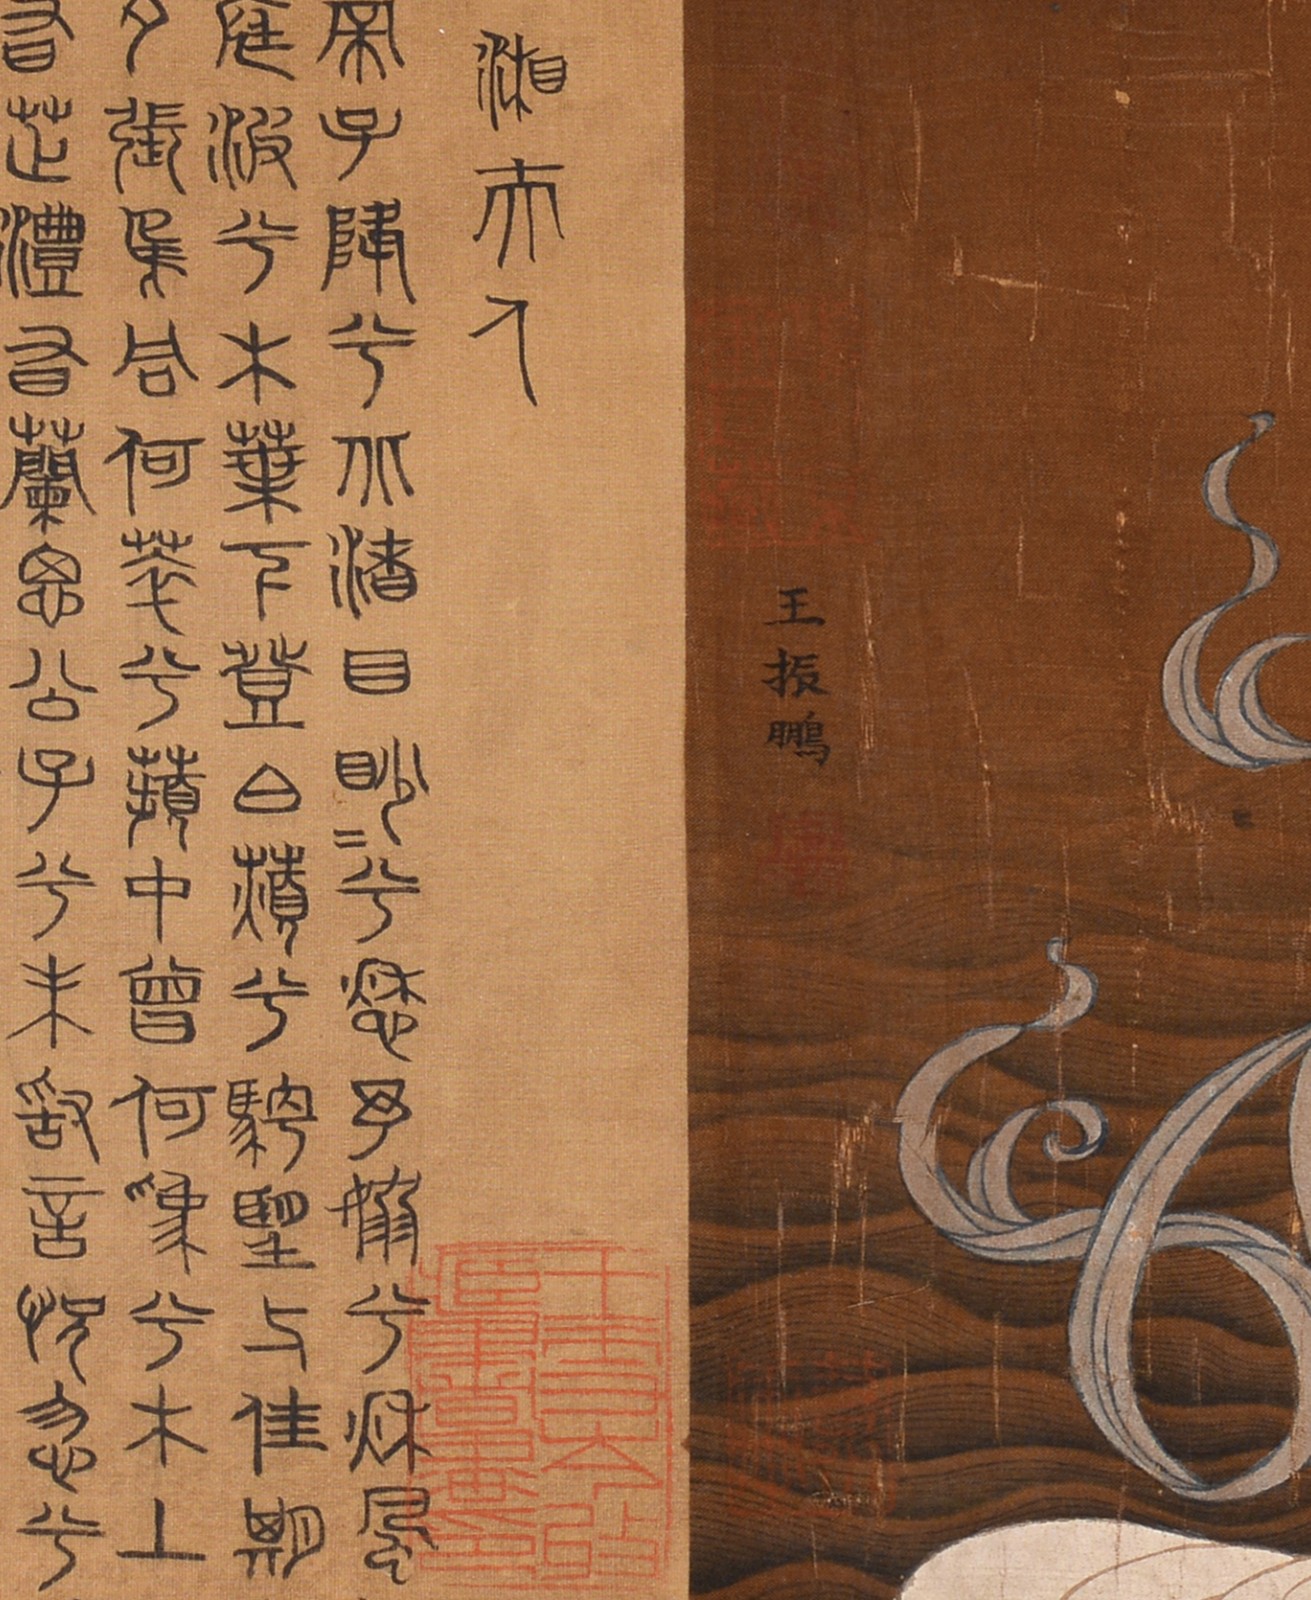 王振鵬
湘夫人
帝子降兮北渚目眇〻兮愁予嫋兮秋風
庭波兮木葉下登白薠兮騁望与佳期
夕張鳥何萃兮蘋中曾何為兮木上
有芷澧有蘭思公子兮未敢言怳忽兮